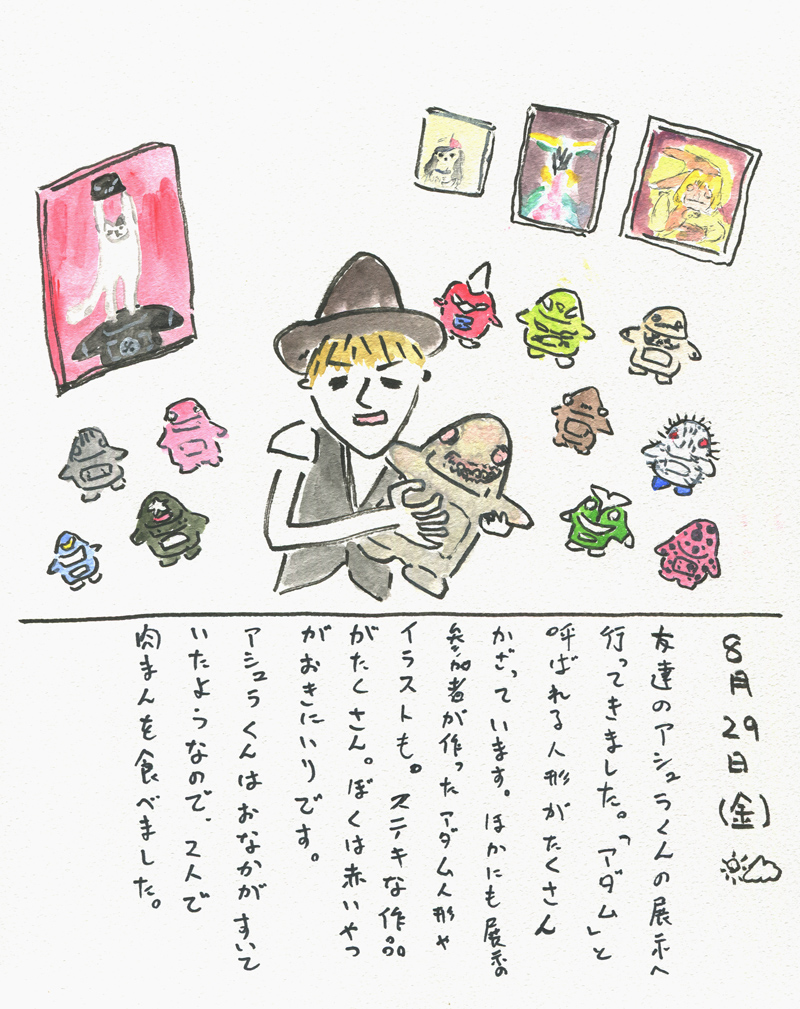 8月29日(金)
友達のアシュラくんの展示へ
行ってきました。「アダム」と
呼ばれる人形がたくさん
かざっています。ほかにも展示の
参加者が作ったアダム人形や
イラストも。ステキな作品
がたくさん。ぼくは赤いやつ
がおきにいりです。
アシュラくんはおなかがすいて
いたようなので、2人で
肉まんを食べました。